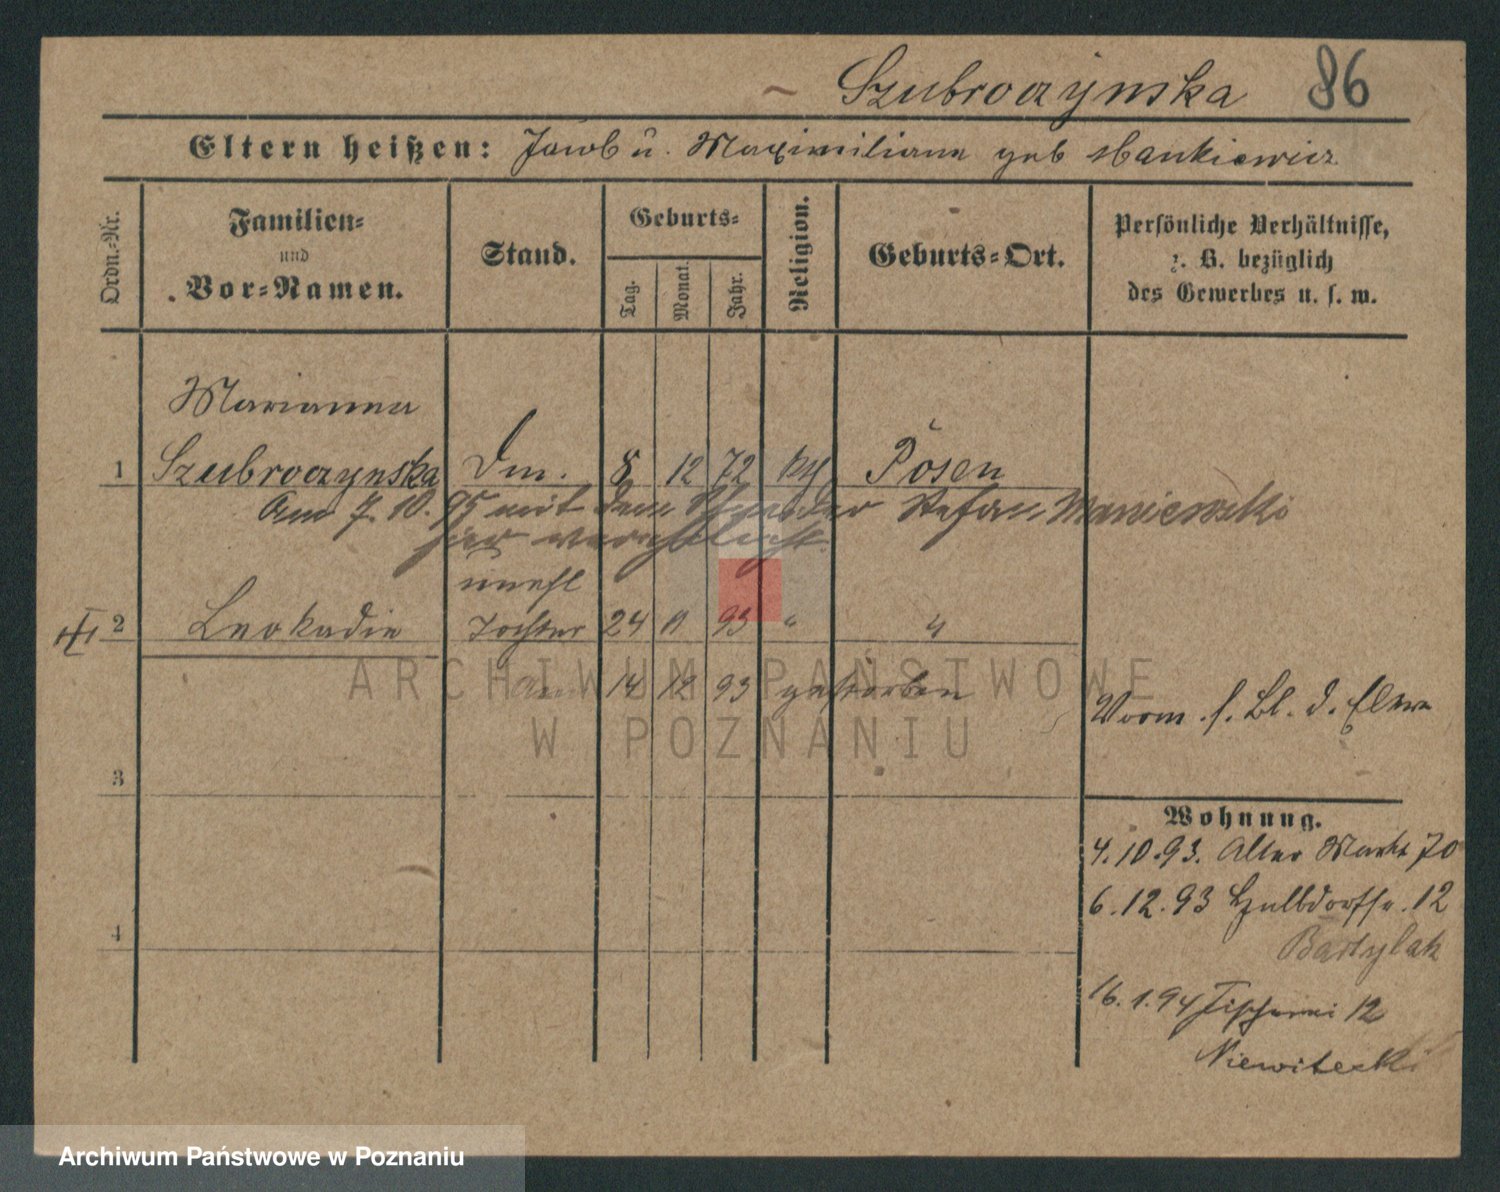 Szubroczynska 86
Eltern heißen: Jacob u. Maximiliana geb Mankiewicz
Ordn.-Nr.
Familien-
und
Vor-Namen.
Stand.
Geburts-
Tag.
Monat.
Jahr.
Religion.
Geburts-Ort.
Persönliche Verhältnisse,
z. B. bezüglich
des Gewerbes u. s. w.
Marianna
1 Szubroczynska Dm. 8 12 72 kth Posen
Am 7. 10. 95 mit dem Schneider Stefan Maniewski
hier verehelicht.
unehl
2 Leokadie Tochter 24 11 93 " "
am 14 12 93 gestorben
Vorm. s. Bl. d. Eltern
3
Wohnung.
4.10.93. Alter Markt 70
6.12.93 12
4
16.1.94 Fischerei 12
ARCHIWUM PAŃSTWOWE
W POZNANIU
Archiwum Państwowe w Poznaniu